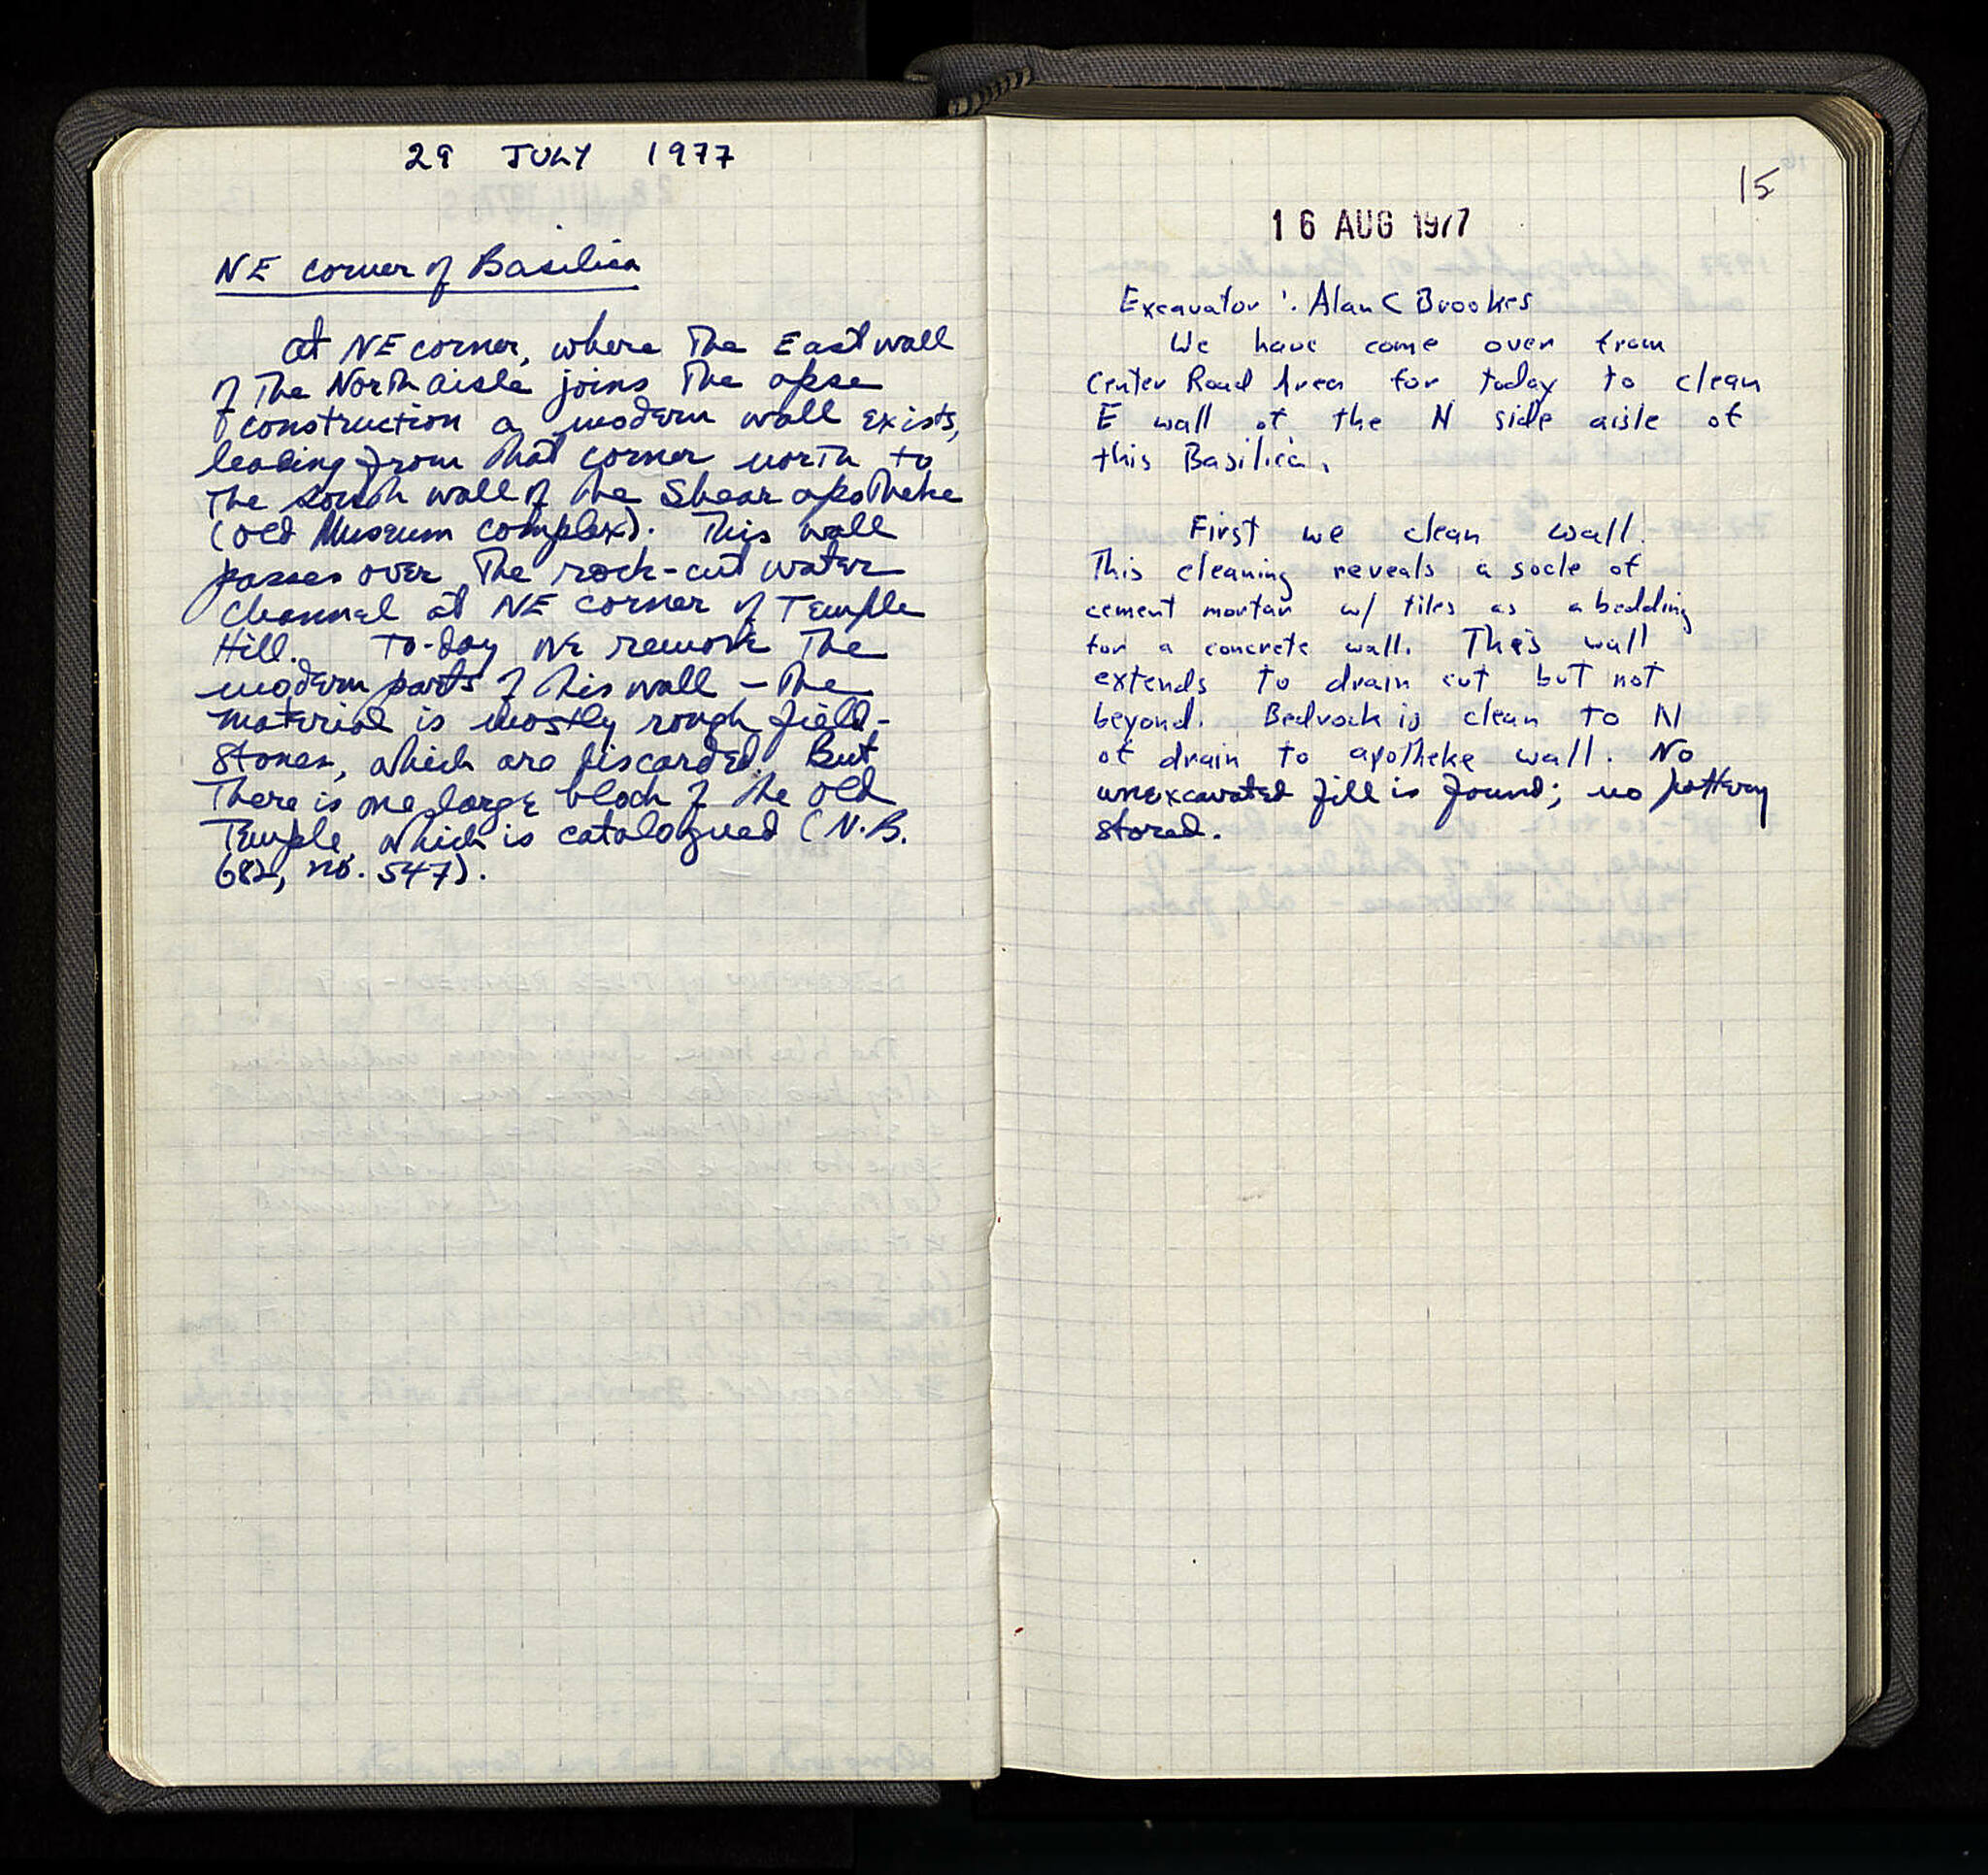 29 JULY 1977
NE corner of Basilica
At NE corner, where the East wall
of the North aisle joins the apse
construction a modern wall exists,
leading from that corner north to
the south wall of the Shear apotheke
(old Museum complex). This wall
passes over the rock-cut water
channel at NE corner of Temple
Hill. To-day we remove the
modern parts of this wall - the
material is mostly rough field-
stones, which are discarded. But
there is one large block of the old
Temple, which is catalogued (N.B.
682, no. 547).
15
16 AUG 1977
Excavator : Alan C Brookes
We have come over from
Center Road Area for today to clean
E wall of the N side aisle of
this Basilica.
First we clean wall.
This cleaning reveals a socle of
cement mortar w/ tiles as a bedding
for a concrete wall. This wall
extends to drain cut but not
beyond. Bedrock is clean to N
of drain to apotheke wall. No
unexcavated fill is found; no pottery
stored.